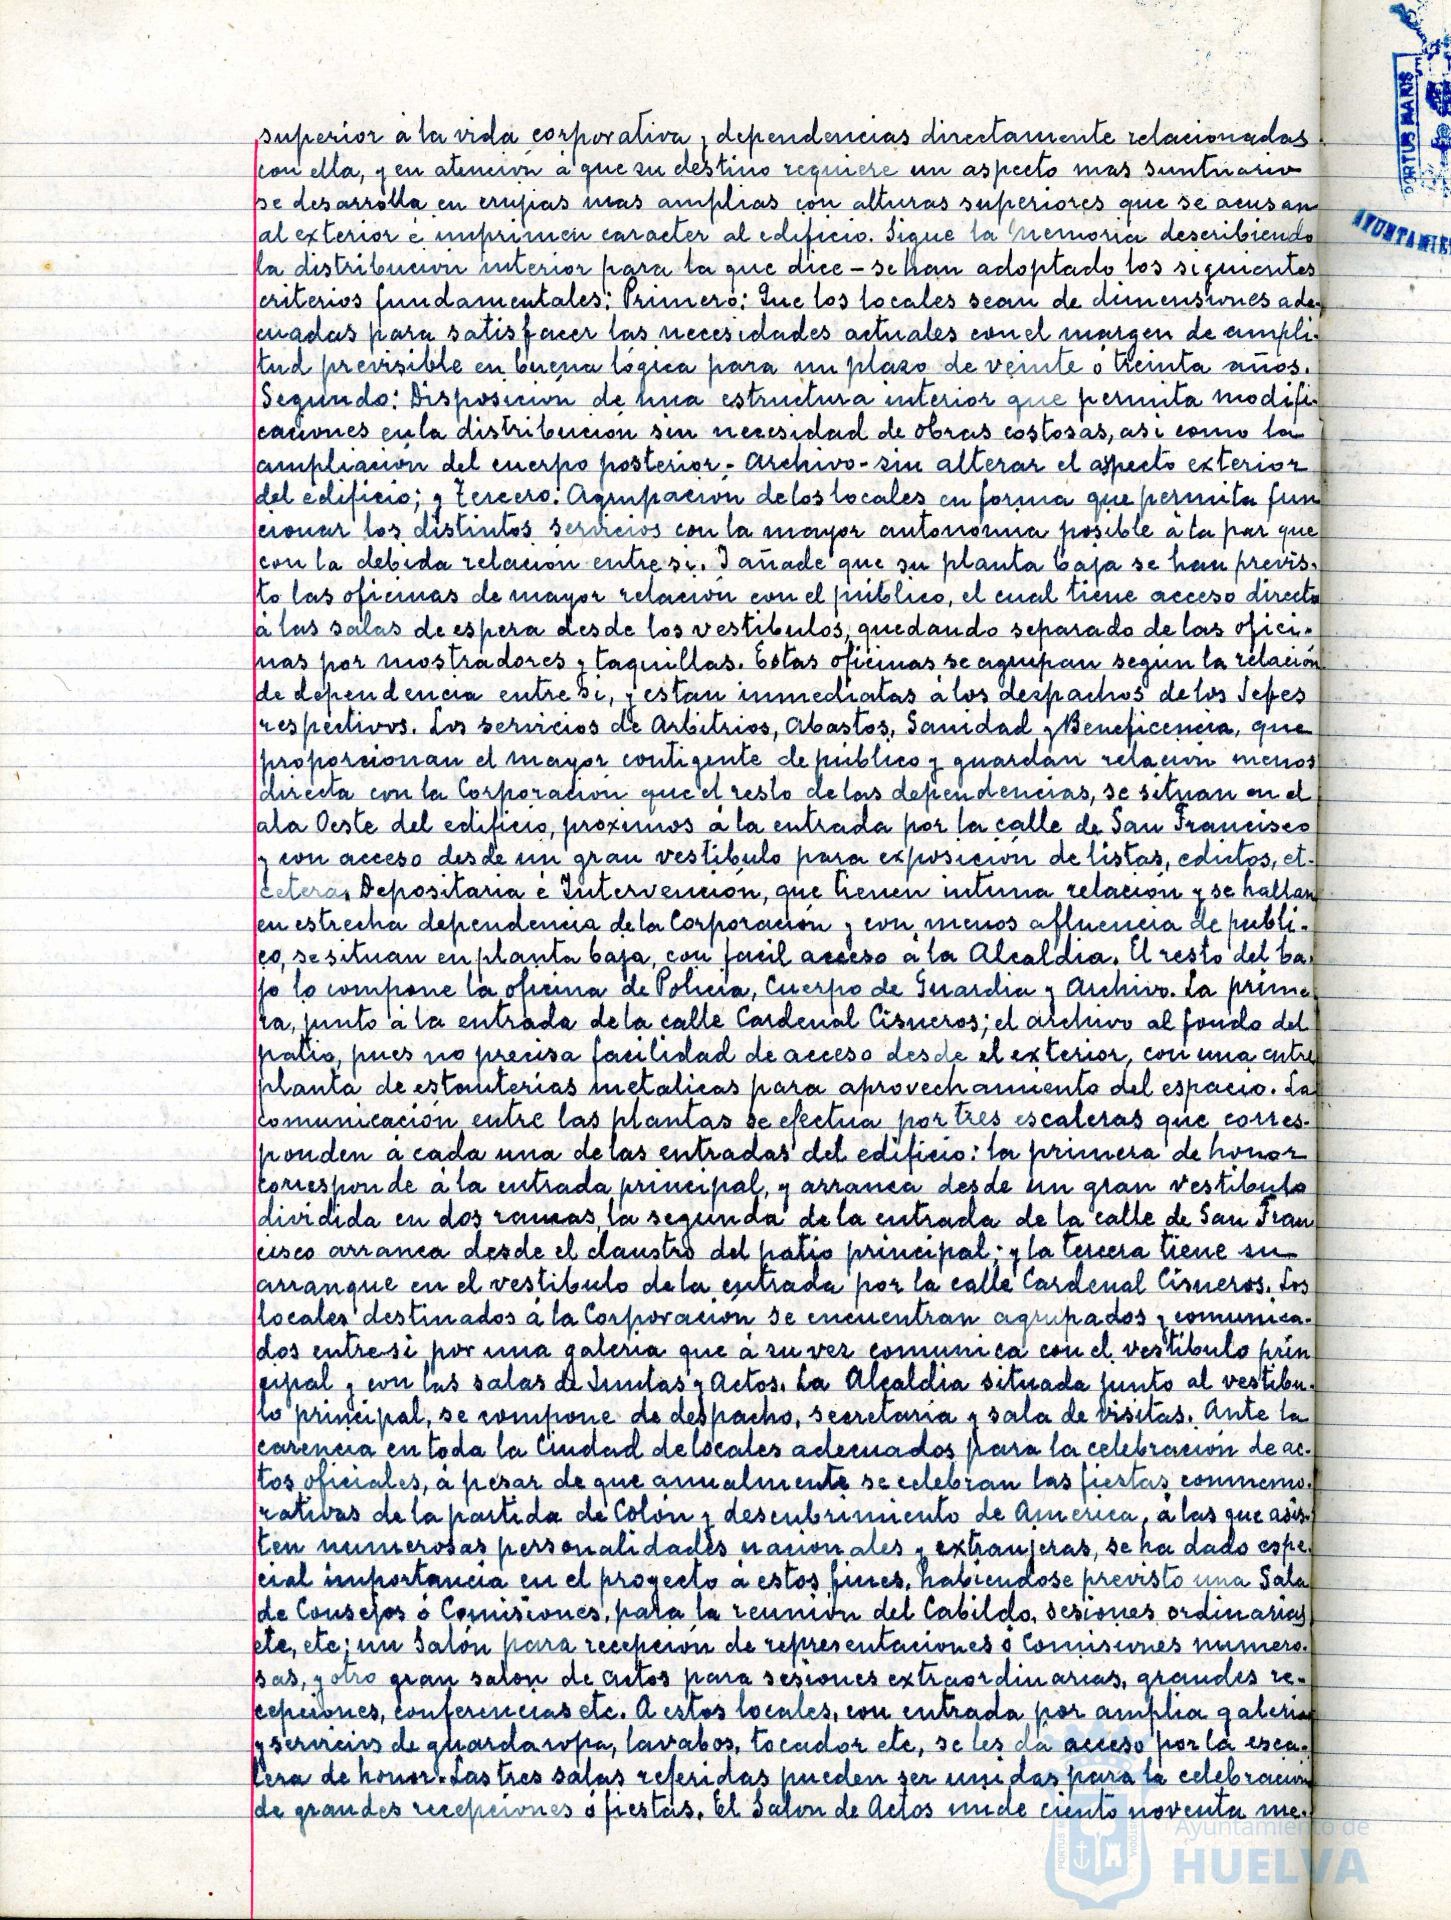 superior á la vida corporativa y dependencias directamente relacionadas
con ella, y en atención á que su destino requiere un aspecto mas suntuario
se desarrolla en crujias mas amplias con alturas superiores que se acusan
al exterior é imprimen caracter al edificio. Sigue la Memoria describiendo
la distribucion interior para la que dice - se han adoptado los siguientes
criterios fundamentales: Primero: Que los locales sean de dimensiones ade-
cuadas para satisfacer las necesidades actuales con el margen de ampli-
tud previsible en buena lógica para un plazo de veinte ó treinta años.
Segundo: Disposición de una estructura interior que permita modifi-
caciones en la distribución sin necesidad de obras costosas, asi como la
ampliación del cuerpo posterior - Archivo - sin alterar el aspecto exterior
del edificio; y Tercero: Agrupación de los locales en forma que permita fun
cionar los distintos servicios con la mayor autonomia posible á la par que
con la debida relación entre si. I añade que su planta baja se han previs-
to las oficinas de mayor relación con el público, el cual tiene acceso directo
á las salas de espera desde los vestibulos, quedando separado de las ofici-
nas por mostradores y taquillas. Estas oficinas se agrupan según la relación
de dependencia entre si, y estan inmediatas á los despachos de los Jefes
respectivos. Los servicios de Arbitrios, Abastos, Sanidad y Beneficencia, que
proporcionan el mayor contigente de público y guardan relación menos
directa con la Corporación que el resto de las dependencias, se situan en el
ala Oeste del edificio, proximos á la entrada por la calle de San Francisco
y con acceso desde un gran vestibulo para exposición de listas, edictos, et-
cetera. Depositaria é Intervención, que tienen intima relación y se hallan
en estrecha dependencia de la Corporación y con menos afluencia de publi-
co, se situan en planta baja, con facil acceso á la Alcaldia. El resto del ba-
jo lo compone la oficina de Policia, Cuerpo de Guardia y Archivo. La prime-
ra, junto á la entrada de la calle Cardenal Cisneros; el archivo al fondo del
patio, pues no precisa facilidad de acceso desde el exterior, con una entre
planta de estanterias metalicas para aprovechamiento del espacio. La
comunicación entre las plantas se efectua por tres escaleras que corres-
ponden á cada una de las entradas del edificio: la primera de honor
corresponde á la entrada principal, y arranca desde un gran vestibulo
dividida en dos ramas, la segunda de la entrada de la calle de San Fran
cisco arranca desde el claustro del patio principal; y la tercera tiene su
arranque en el vestibulo de la entrada por la calle Cardenal Cisneros. Los
locales destinados á la Corporación se encuentran agrupados y comunica-
dos entre si por una galeria que á su vez comunica con el vestibulo prin
cipal y con las salas de Juntas y Actos. La Alcaldia situada junto al vestibu-
lo principal, se compone de despacho, secretaria y sala de visitas. Ante la
carencia en toda la Ciudad de locales adecuados para la celebración de ac-
tos oficiales, á pesar de que anualmente se celebran las fiestas conmemo-
rativas de la partida de Colón y descubrimiento de America, á las que asis-
ten numerosas personalidades nacionales y extranjeras, se ha dado espe-
cial importancia en el proyecto á estos fines, habiendose previsto una Sala
de Consejos ó Comisiones, para la reunión del Cabildo, sesiones ordinarias
etc, etc; un Salón para recepción de representaciones ó Comisiones numero-
sas, y otro gran salon de actos para sesiones extraordinarias, grandes re-
cepciones, conferencias etc. A estos locales, con entrada por amplia galeria
y servicios de guardaropa, lavabos, tocador etc, se les dá acceso por la esca-
lera de honor. Las tres salas referidas pueden ser unidas para la celebración
de grandes recepciones ó fiestas. El Salon de Actos mide ciento noventa me-
PORTUS MARIS
AYUNTAMIE
Ayuntamiento de
HUELVA